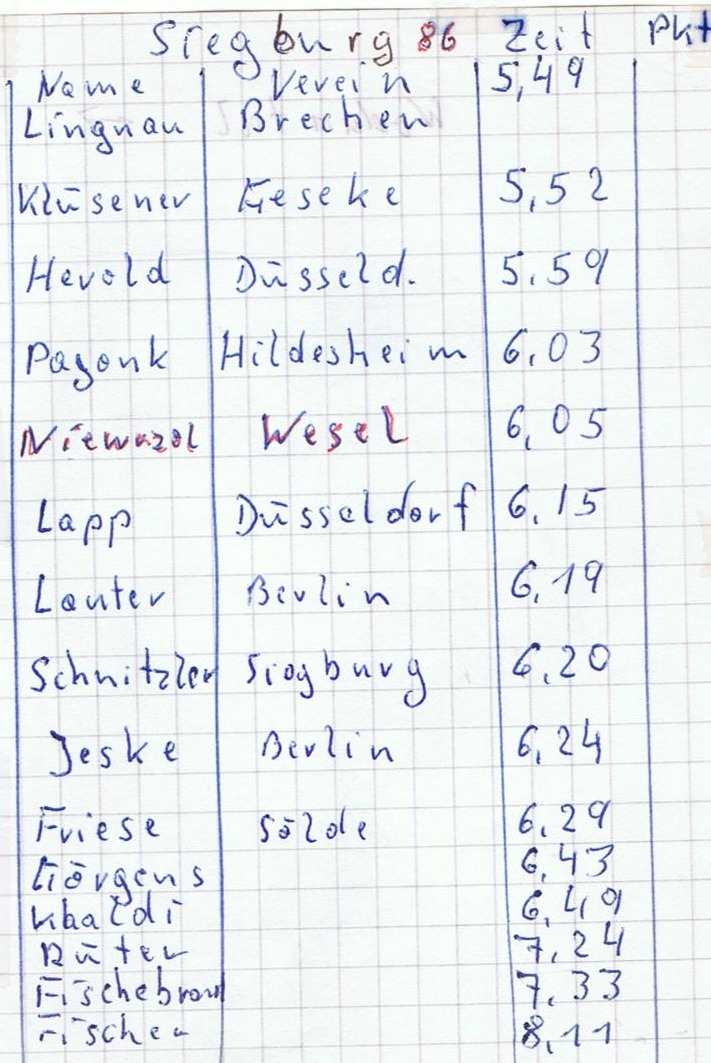 Siegburg 86 Zeit Pkt
Name Verein 5,49
Lingnau Brechen
Klüsener Geseke 5,52
Herold Düsseld. 5,59
Pagonk Hildesheim 6,03
Niewazol Wesel 6,05
Lapp Düsseldorf 6,15
Lauter Berlin 6,19
Schnitzler Siegburg 6,20
Jeske Berlin 6,24
Friese Sölde 6,29
Görgens 6,43
Khaldi 6,49
Rüter 7,24
7,33
Fischer 8,11